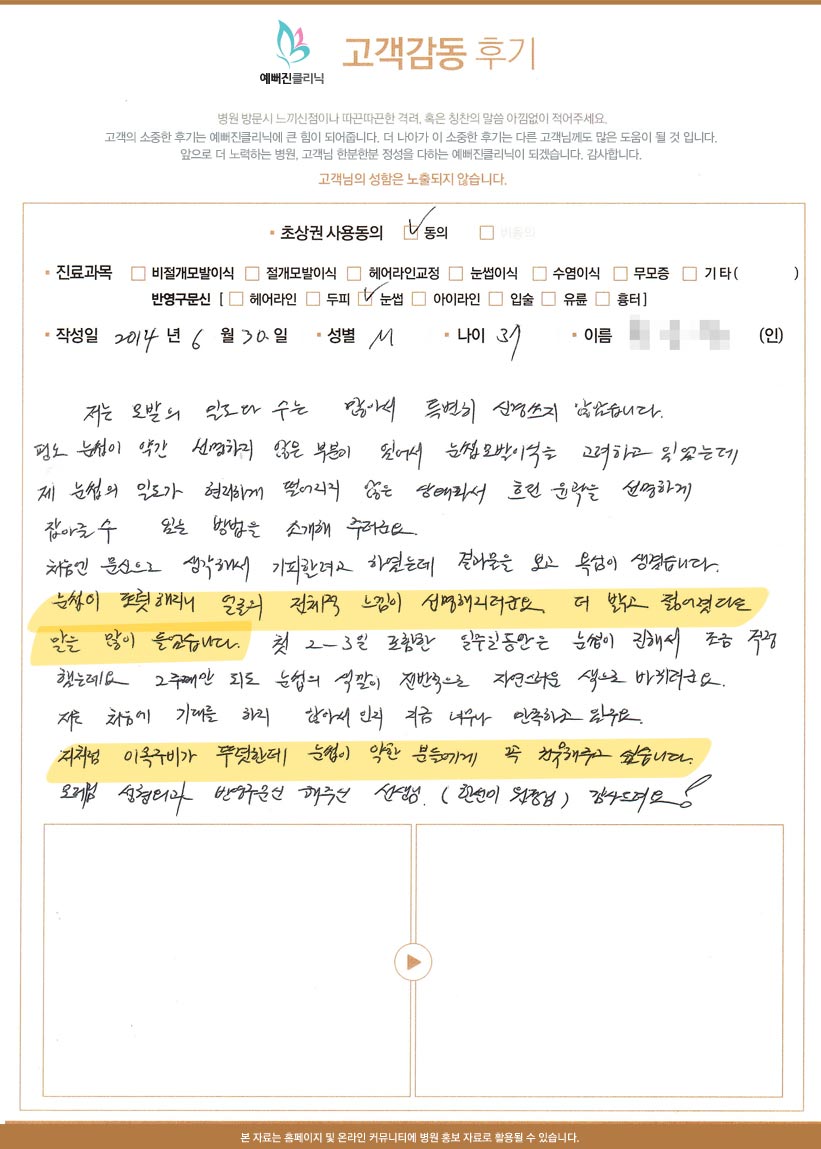 예뻐진클리닉
고객감동 후기
병원 방문시 느끼신점이나 따끈따끈한 격려, 혹은 칭찬의 말씀 아낌없이 적어주세요.
고객의 소중한 후기는 예뻐진클리닉에 큰 힘이 되어줍니다. 더 나아가 이 소중한 후기는 다른 고객님께도 많은 도움이 될 것 입니다.
앞으로 더 노력하는 병원, 고객님 한분한분 정성을 다하는 예뻐진클리닉이 되겠습니다. 감사합니다.
고객님의 성함은 노출되지 않습니다.
초상권 사용동의 동의 비동의
진료과목 비절개모발이식 절개모발이식 헤어라인교정 눈썹이식 수염이식 무모증 기 타 ( )
반영구문신 [ 헤어라인 두피 눈썹 아이라인 입술 유륜 흉터 ]
작성일 2014 년 6 월 30 일 성별 M 나이 37 이름 (인)
저는 모발의 밀도나 수는 많아서 특별히 신경쓰지 않았습니다.
평소 눈썹이 약간 선명하지 않은 부분이 있어서 눈썹모발이식을 고려하고 있었는데
제 눈썹의 밀도가 현저하게 떨어지지 않은 상태라서 흐린 윤곽을 선명하게
잡아줄 수 있는 방법을 소개해 주더군요.
처음엔 문신으로 생각해서 기피할려고 하였는데 결과물을 보고 욕심이 생겼습니다.
눈썹이 또렷해지니 얼굴의 전체적 느낌이 선명해지더군요 더 밝고 젊어졌다는
말을 많이 들었습니다. 첫 2-3일 포함한 일주일동안은 눈썹이 진해서 조금 걱정
했는데요 2주째만 되도 눈썹의 색깔이 전반적으로 자연스러운 색으로 바뀌더군요.
저는 처음에 기대를 하지 않아서 인지 지금 너무나 만족하고 있구요.
저처럼 이목구비가 뚜렷한데 눈썹이 약한 분들에게 꼭 추천해주고 싶습니다.
모제림 성형외과 반영구문신 해주신 선생님. ( 한선이 원장님 ) 감사드려요!
본 자료는 홈페이지 및 온라인 커뮤니티에 병원 홍보 자료로 활용될 수 있습니다.